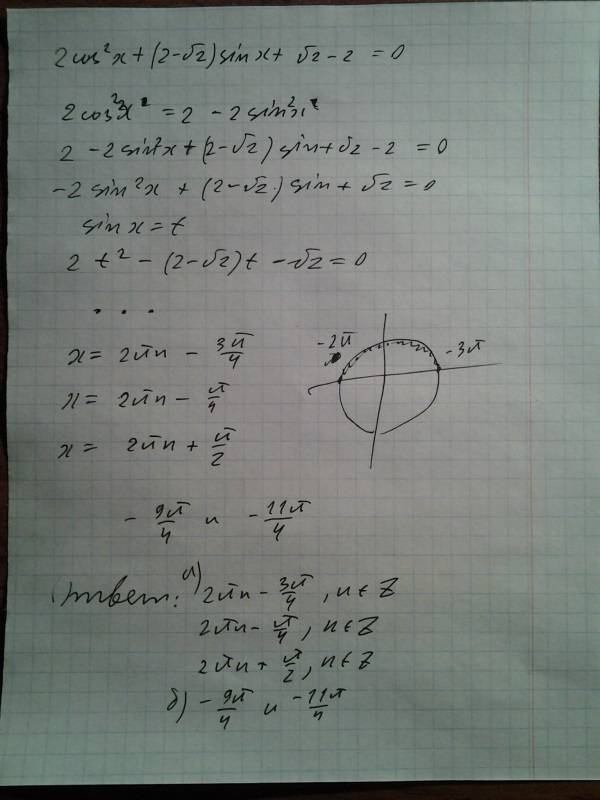 2cos²x + (2-√2)sinx + √2 - 2 = 0
2cos²x = 2 - 2sin²x
2 - 2sin²x + (2-√2)sin + √2 - 2 = 0
-2sin²x + (2-√2)sin + √2 = 0
sinx = t
2t² - (2-√2)t - √2 = 0
...
x = 2πn - 3π/4
x = 2πn - π/4
x = 2πn + π/2
-2π
-3π
-9π/4 и -11π/4
Ответ: а) 2πn - 3π/4, n ∈ Z
2πn - π/4, n ∈ Z
2πn + π/2, n ∈ Z
б) -9π/4 и -11π/4